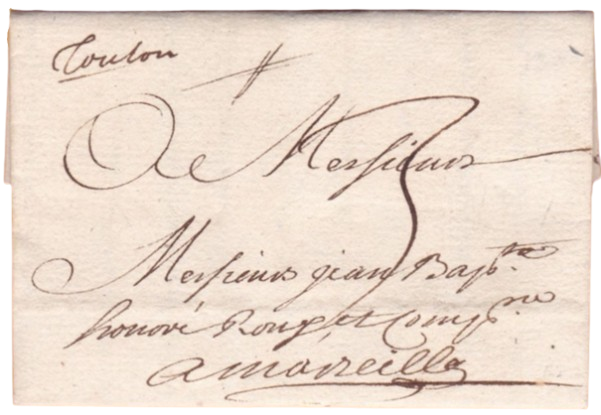 Toulon
A Messieurs
3
Messieurs jean Bap.te
honoré Roux et Comp.nie
a marseille